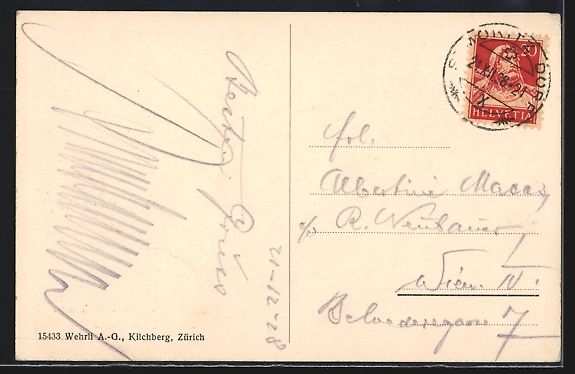 Beste Grüss
21-12-28
15433 Wehrli A.-G., Kilchberg, Zürich
20
HELVETIA
Frl.
Albertine
c/o R. Neubauer,
Wien IV.
Belvederegasse 7